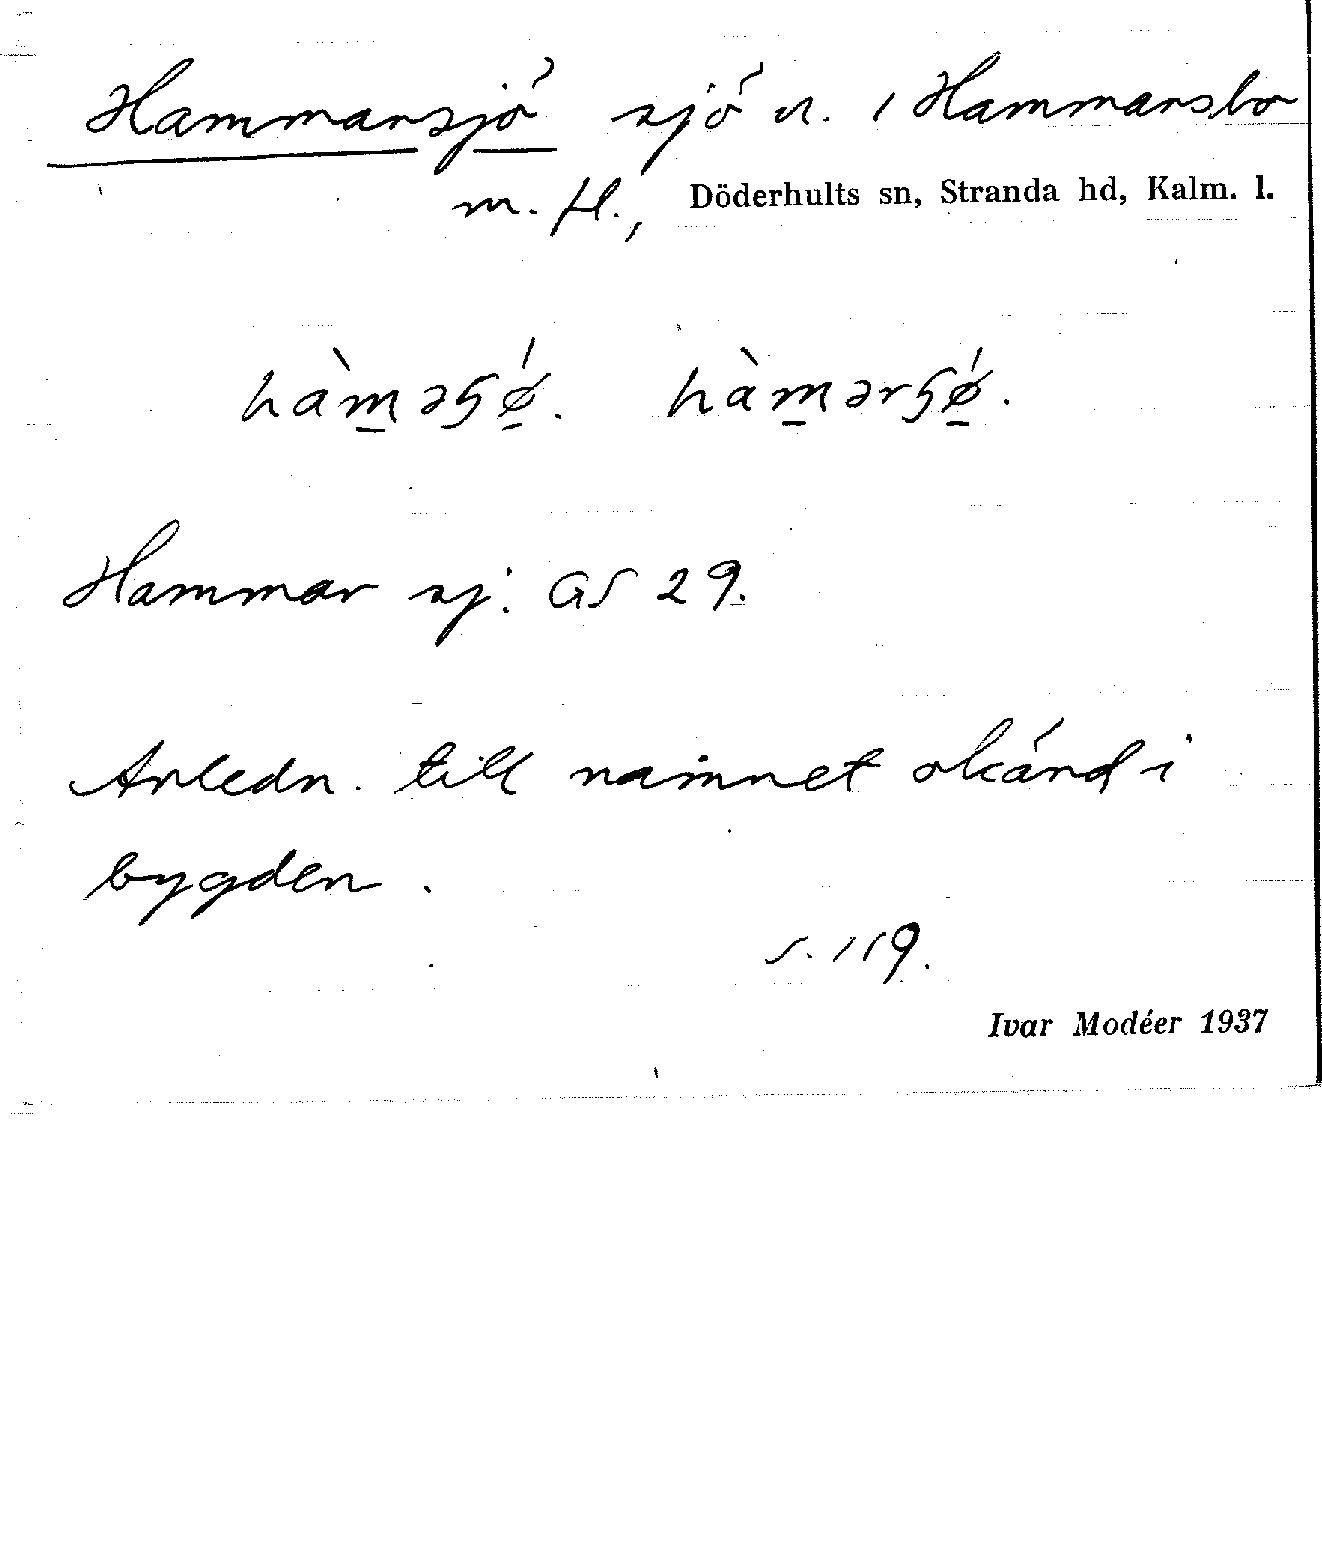 Hammarsjö sjö v. i Hammarsbo
m. fl., Döderhults sn, Stranda hd, Kalm. l.
hàməʂǿ. hàmərʂǿ.
Hammar sj: GS 29.
Anledn. till namnet okänd i
bygden.
s. 119.
Ivar Modéer 1937